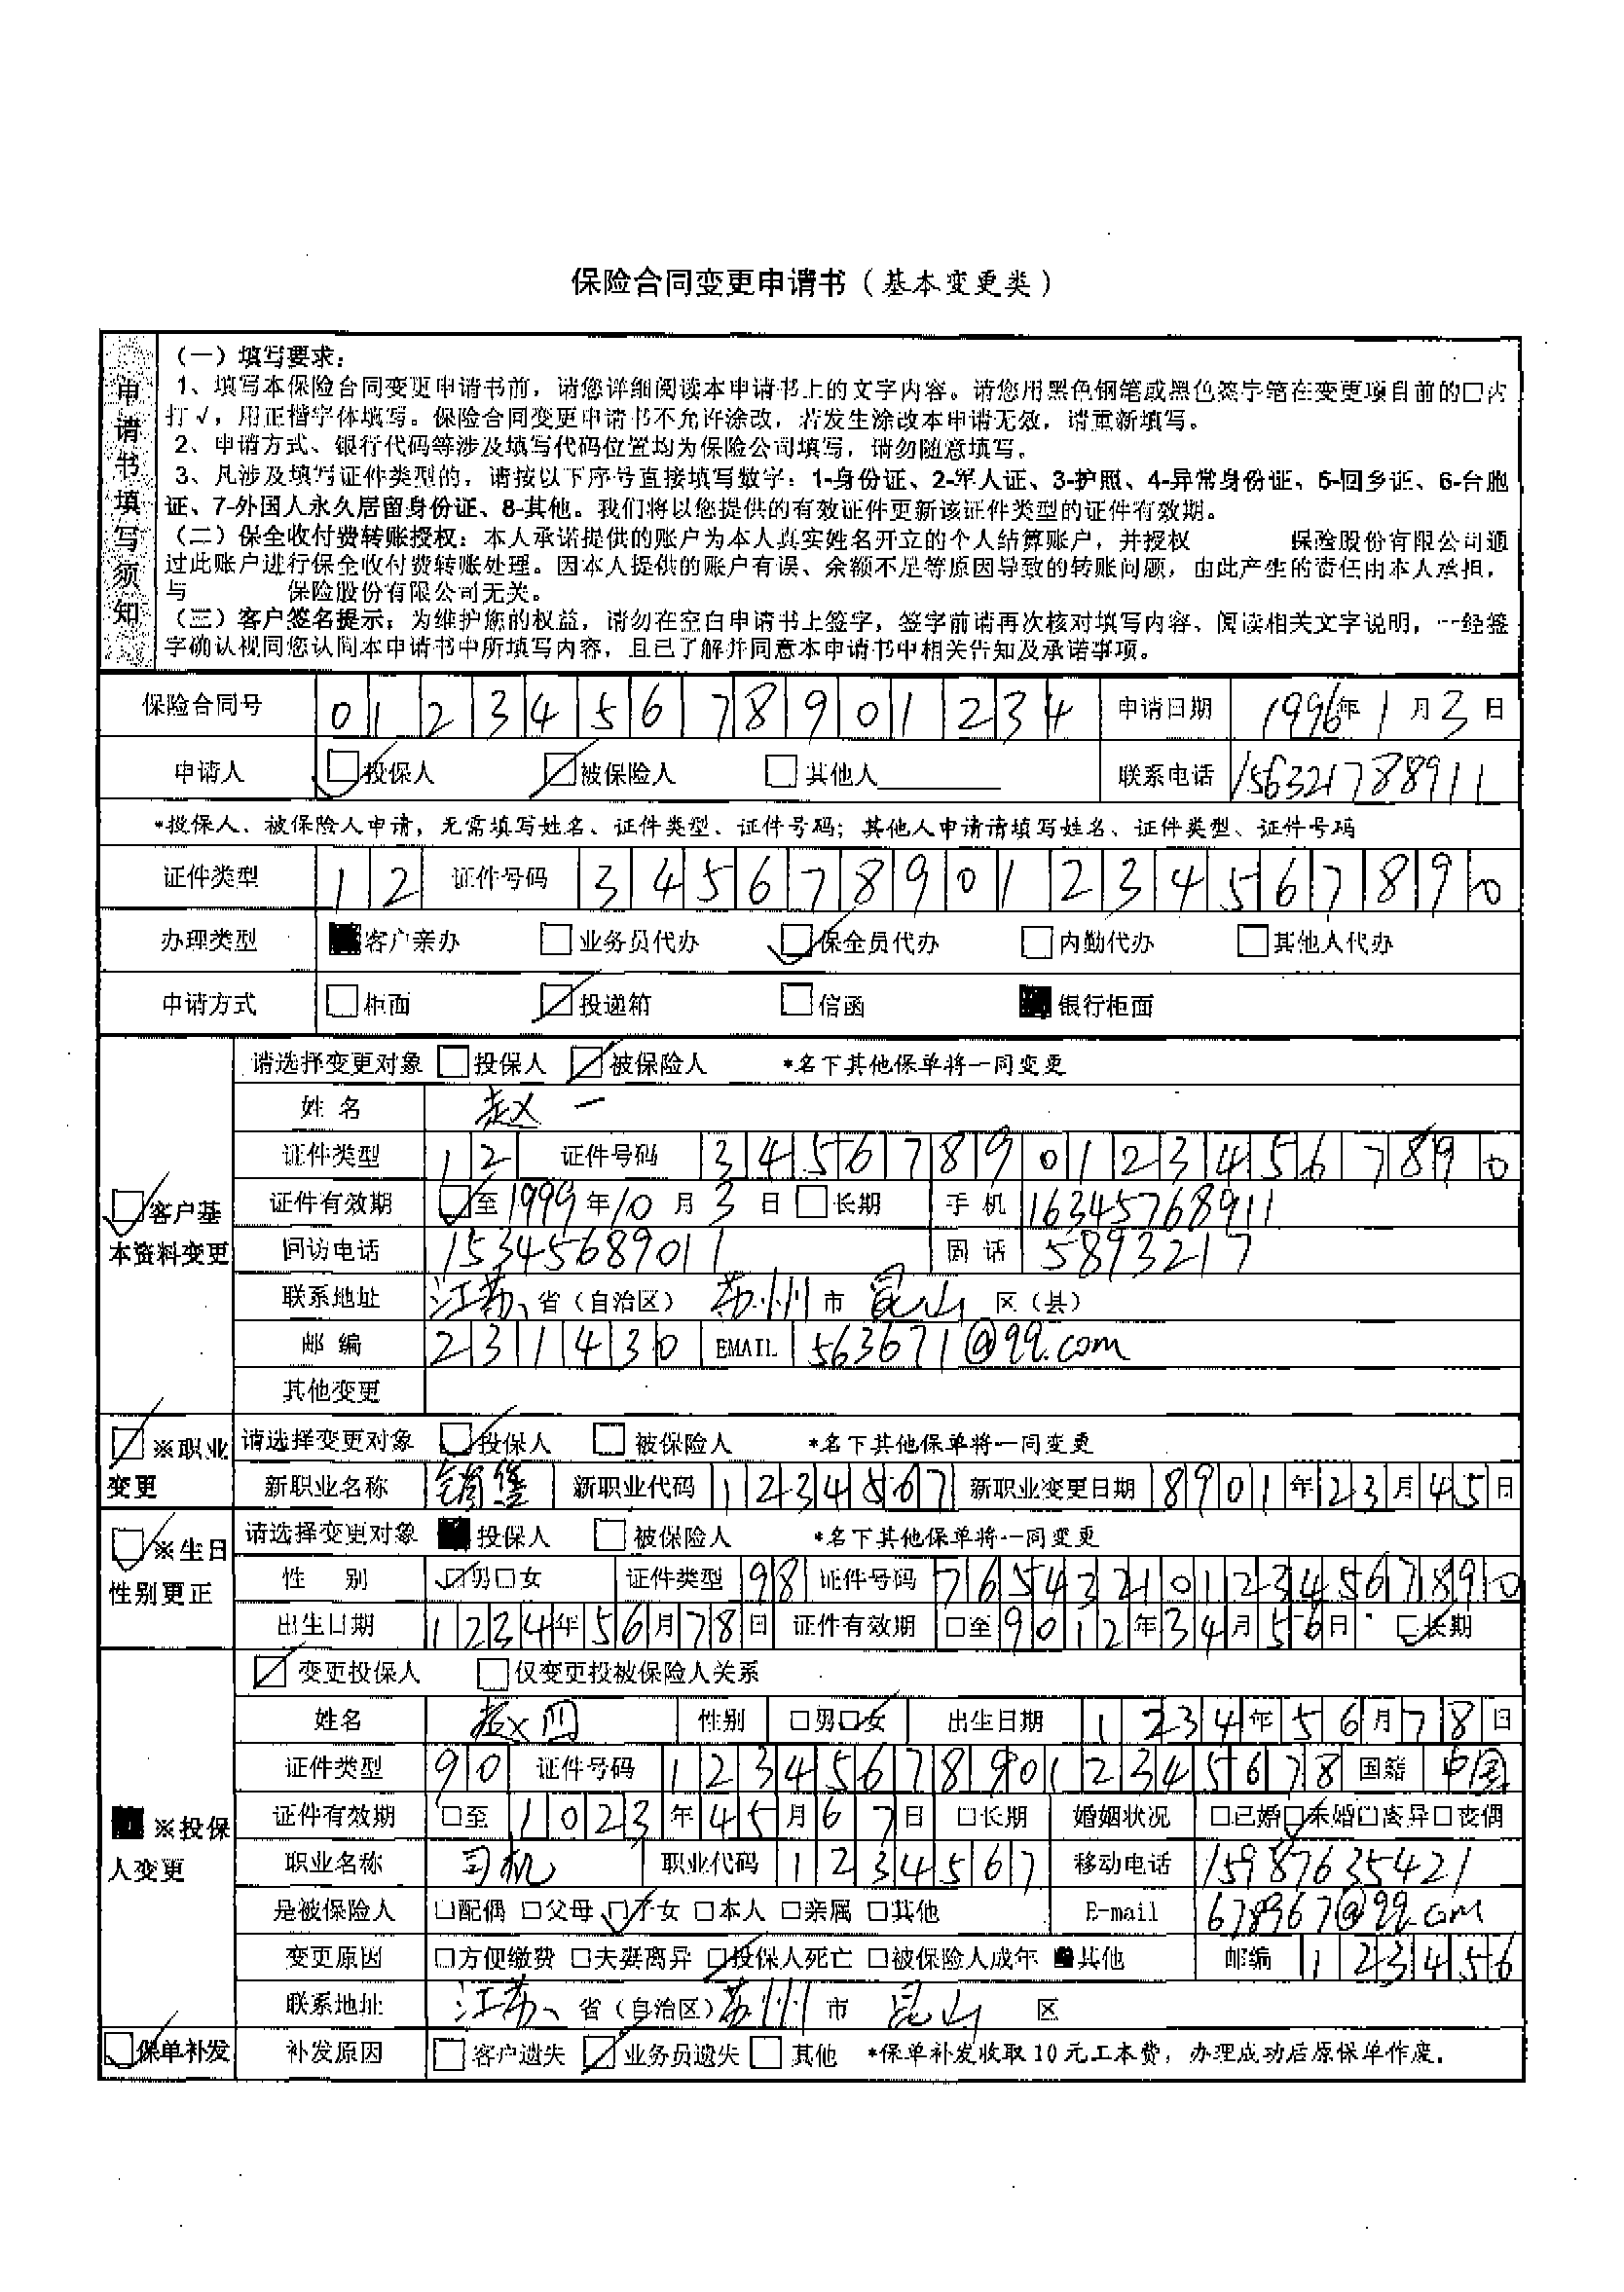 保险合同变更申请书（基本变更类）
申请书填写须知
（一）填写要求：
1、填写本保险合同变更申请书前，请您详细阅读本申请书上的文字内容。请您用黑色钢笔或黑色签字笔在变更项目前的□内
打√，用正楷字体填写。保险合同变更申请书不允许涂改，若发生涂改本申请无效，请重新填写。
2、申请方式、银行代码等涉及填写代码位置均为保险公司填写，请勿随意填写。
3、凡涉及填写证件类型的，请按以下序号直接填写数字：1-身份证、2-军人证、3-护照、4-异常身份证、5-回乡证、6-台胞
证、7-外国人永久居留身份证、8-其他。我们将以您提供的有效证件更新该证件类型的证件有效期。
（二）保全收付费转账授权：本人承诺提供的账户为本人真实姓名开立的个人结算账户，并授权 保险股份有限公司通
过此账户进行保全收付费转账处理。因本人提供的账户有误、余额不足等原因导致的转账问题，由此产生的责任由本人承担，
与 保险股份有限公司无关。
（三）客户签名提示：为维护您的权益，请勿在空白申请书上签字，签字前请再次核对填写内容、阅读相关文字说明，一经签
字确认视同您认同本申请书中所填写内容，且已了解并同意本申请书中相关告知及承诺事项。
保险合同号 012345678901234 申请日期 1996年1月3日
申请人 □投保人 □被保险人 □其他人 联系电话 156321788911
*投保人、被保险人申请，无需填写姓名、证件类型、证件号码；其他人申请请填写姓名、证件类型、证件号码
证件类型 12 证件号码 345678901234567890
办理类型 ■客户亲办 □业务员代办 □保全员代办 □内勤代办 □其他人代办
申请方式 □柜面 □投递箱 □信函 ■银行柜面
□客户基本资料变更
请选择变更对象 □投保人 □被保险人 *名下其他保单将一同变更
姓名 赵一
证件类型 12 证件号码 345678901234567890
证件有效期 □至1999年10月3日 □长期 手机 16345768911
回访电话 15345689011 固话 5893217
联系地址 江苏省（自治区） 苏州市 昆山区（县）
邮编 231430 EMAIL 563671@qq.com
其他变更
□※职业变更
请选择变更对象 □投保人 □被保险人 *名下其他保单将一同变更
新职业名称 新职业代码 1234567 新职业变更日期 8901年23月45日
□※生日性别更正
请选择变更对象 ■投保人 □被保险人 *名下其他保单将一同变更
性别 □男□女 证件类型 98 证件号码 765432101234567890
出生日期 1234年56月78日 证件有效期 □至9012年34月56日 □长期
□变更投保人 □仅变更投被保险人关系
姓名 赵四 性别 □男□女 出生日期 1234年56月78日
证件类型 90 证件号码 123456789012345678 国籍 中国
■※投保人变更
证件有效期 □至1023年45月67日 □长期 婚姻状况 □已婚□未婚□离异□丧偶
职业名称 司机 职业代码 1234567 移动电话 15987635421
是被保险人 □配偶 □父母 □子女 □本人 □亲属 □其他 E-mail 678967@qq.com
变更原因 □方便缴费 □夫妻离异 □投保人死亡 □被保险人成年 ■其他 邮编 123456
联系地址 江苏省（自治区）苏州市 昆山区
□保单补发 补发原因 □客户遗失 □业务员遗失 □其他 *保单补发收取10元工本费，办理成功后原保单作废.